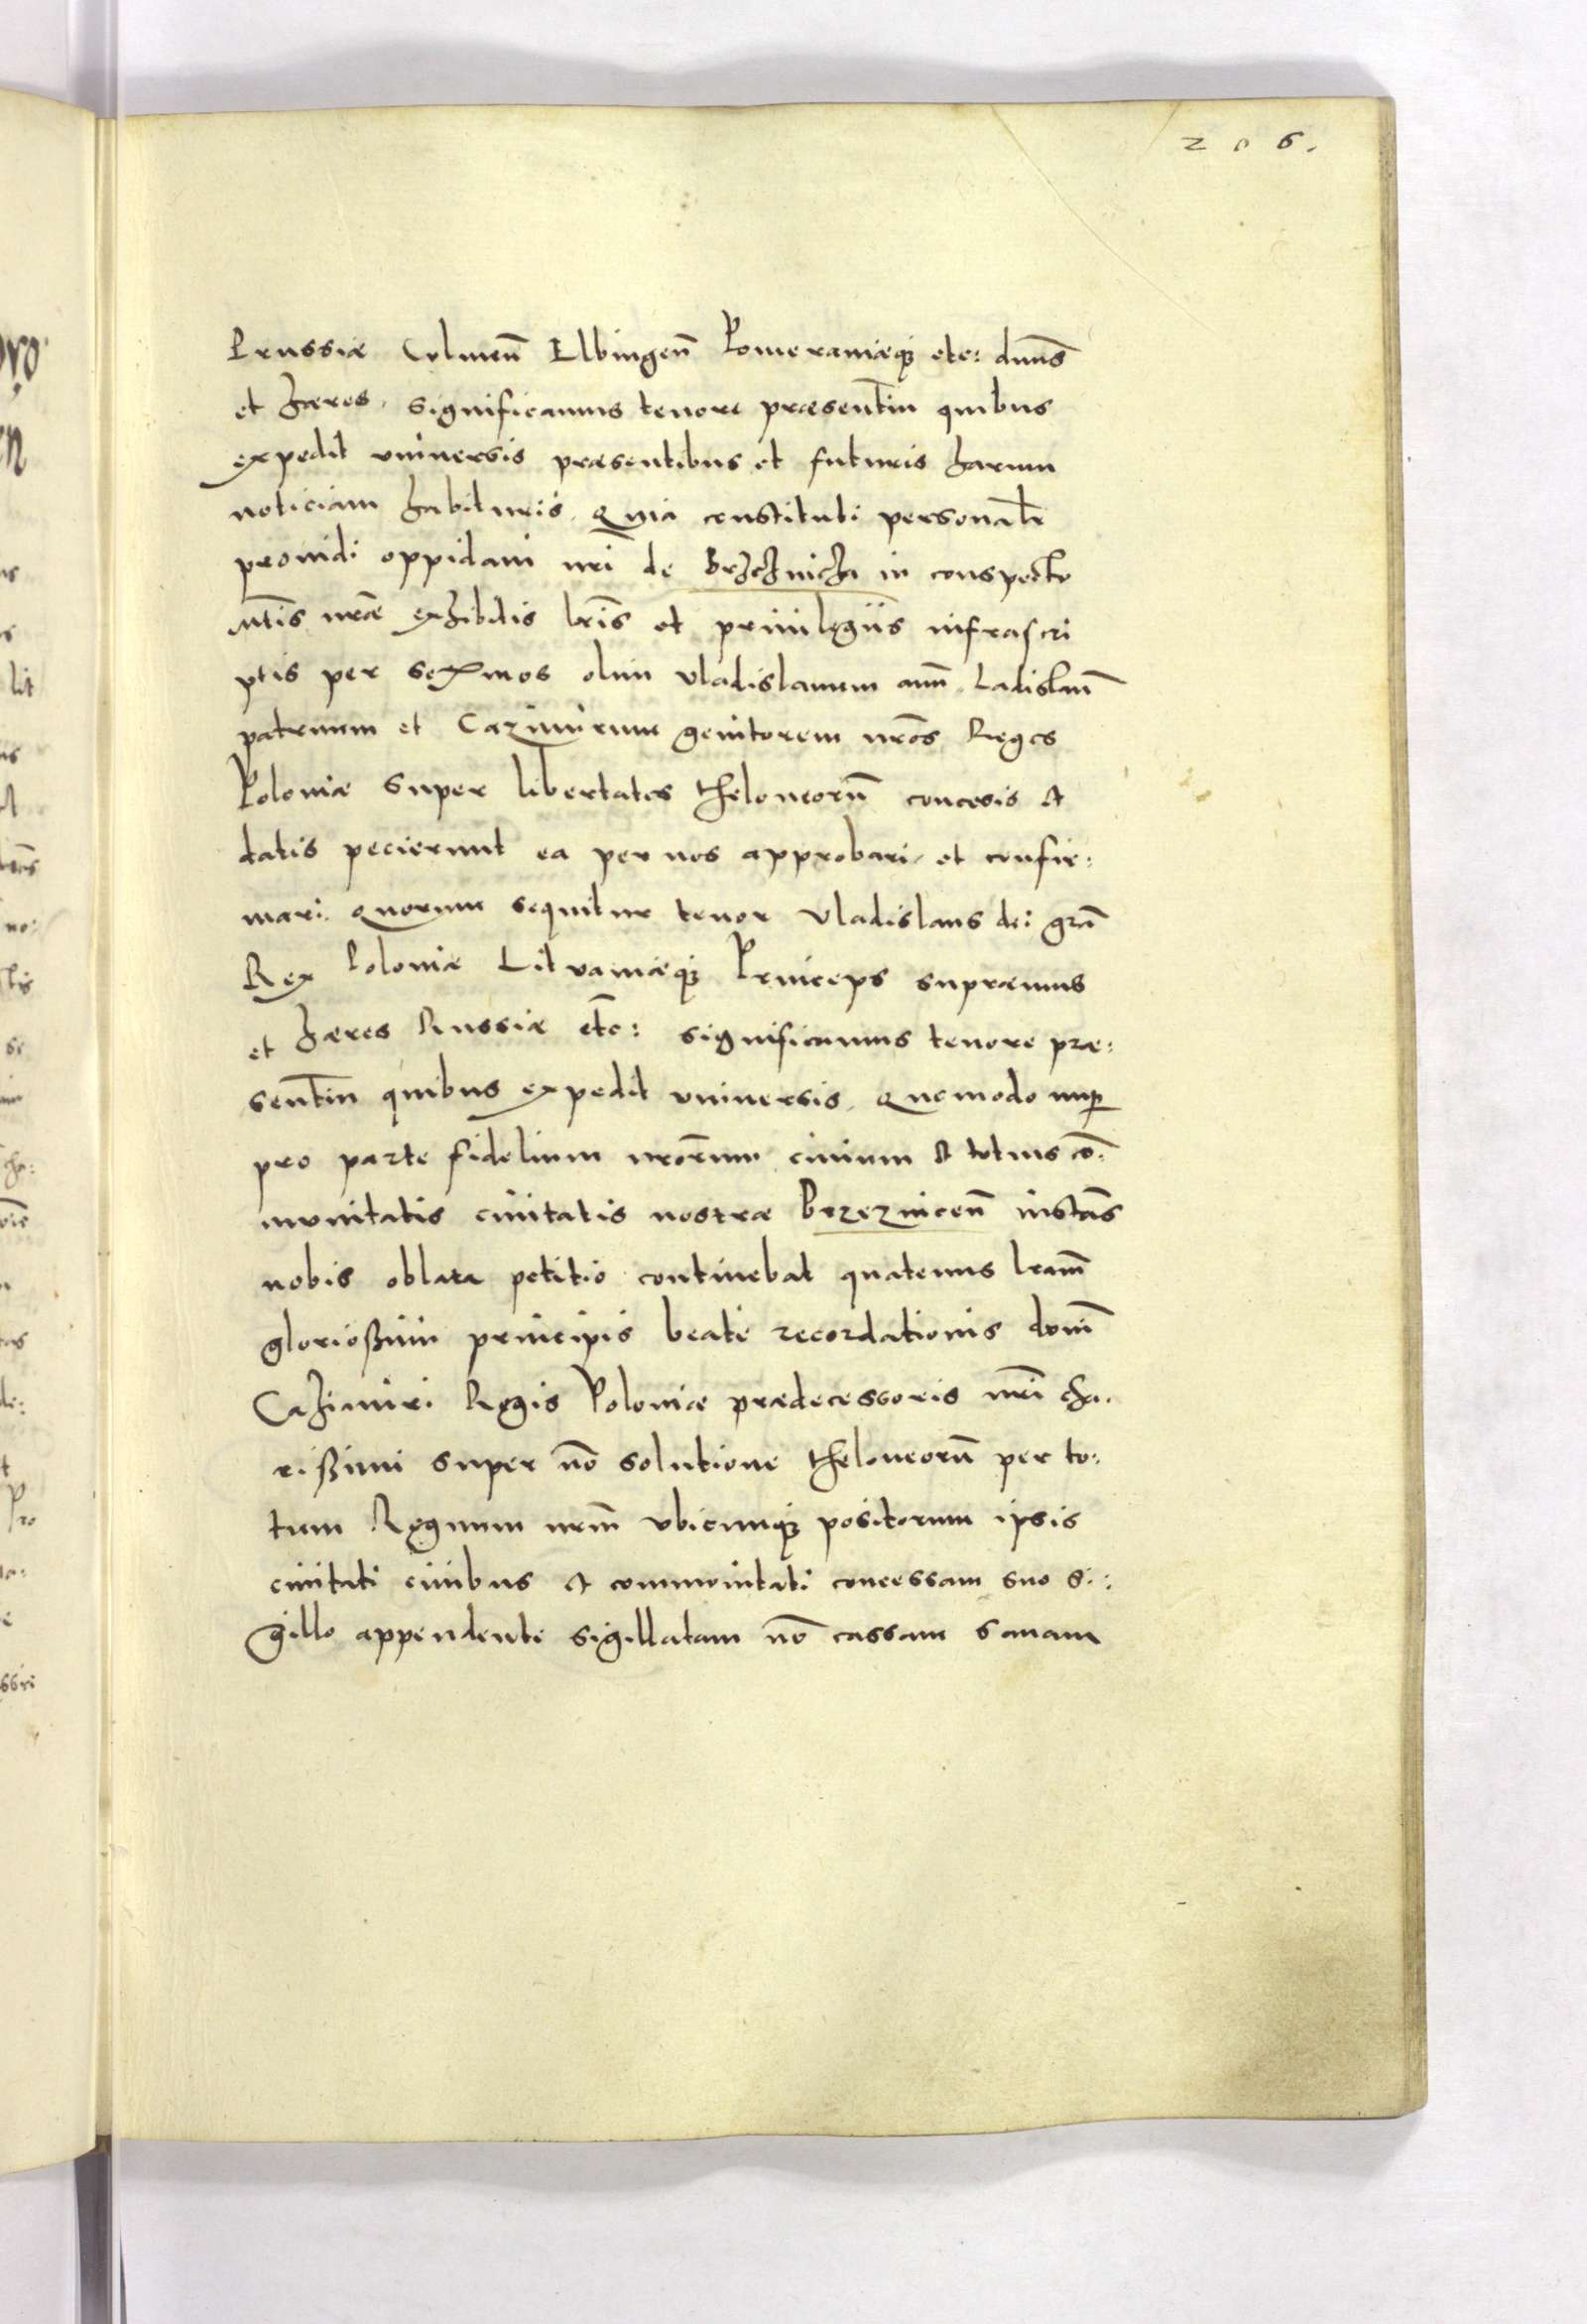 206.
Prussiæ Culmeñ Elbingeñ Pomeraniæq; etc: dnus̃
et hæres. significamus tenore præsentiũ quibus
expedit vniuersis præsentibus et futuris harum
noticiam habituris. Quia constituti personalr̃
prouidi oppidani nr̃i de Brzeznicza in conspectu
Mtis̃ nr̃æ exhibitis lr̃is et priuilegiis infrascri
ptis per seren̄mos olim Vladislauum auũ. Ladislaũ
patruum et Cazimirum genitorem nr̃os Reges
Poloniæ super libertates theloneorũ concessis et
datis pecierunt ea per nos approbari et confir:
mari. Quorum sequitur tenor Vladislaus dei grã
Rex Poloniæ Lituaniæq; Princeps supræmus
et hæres Russiæ etc̃: significamus tenore præ:
sentiũ quibus expedit vniuersis. Quomodo nup̱
pro parte fidelium nr̃orum ciuium et totius cõ:
munitatis ciuitatis nostræ Brzezniceñ instãs
nobis oblata petitio continebat quatenus lr̃am
glorioßimi principis beatæ recordationis domĩ
Cazimiri Regis Poloniæ prædecessoris nr̃i cha:
rißimi super nõ solutione theloneorũ per to:
tum Regnum nr̃m vbicunq; positorum ipsis
ciuitati ciuibus et communitati concessam suo si:
gillo appendente sigillatam nõ cassam sanam